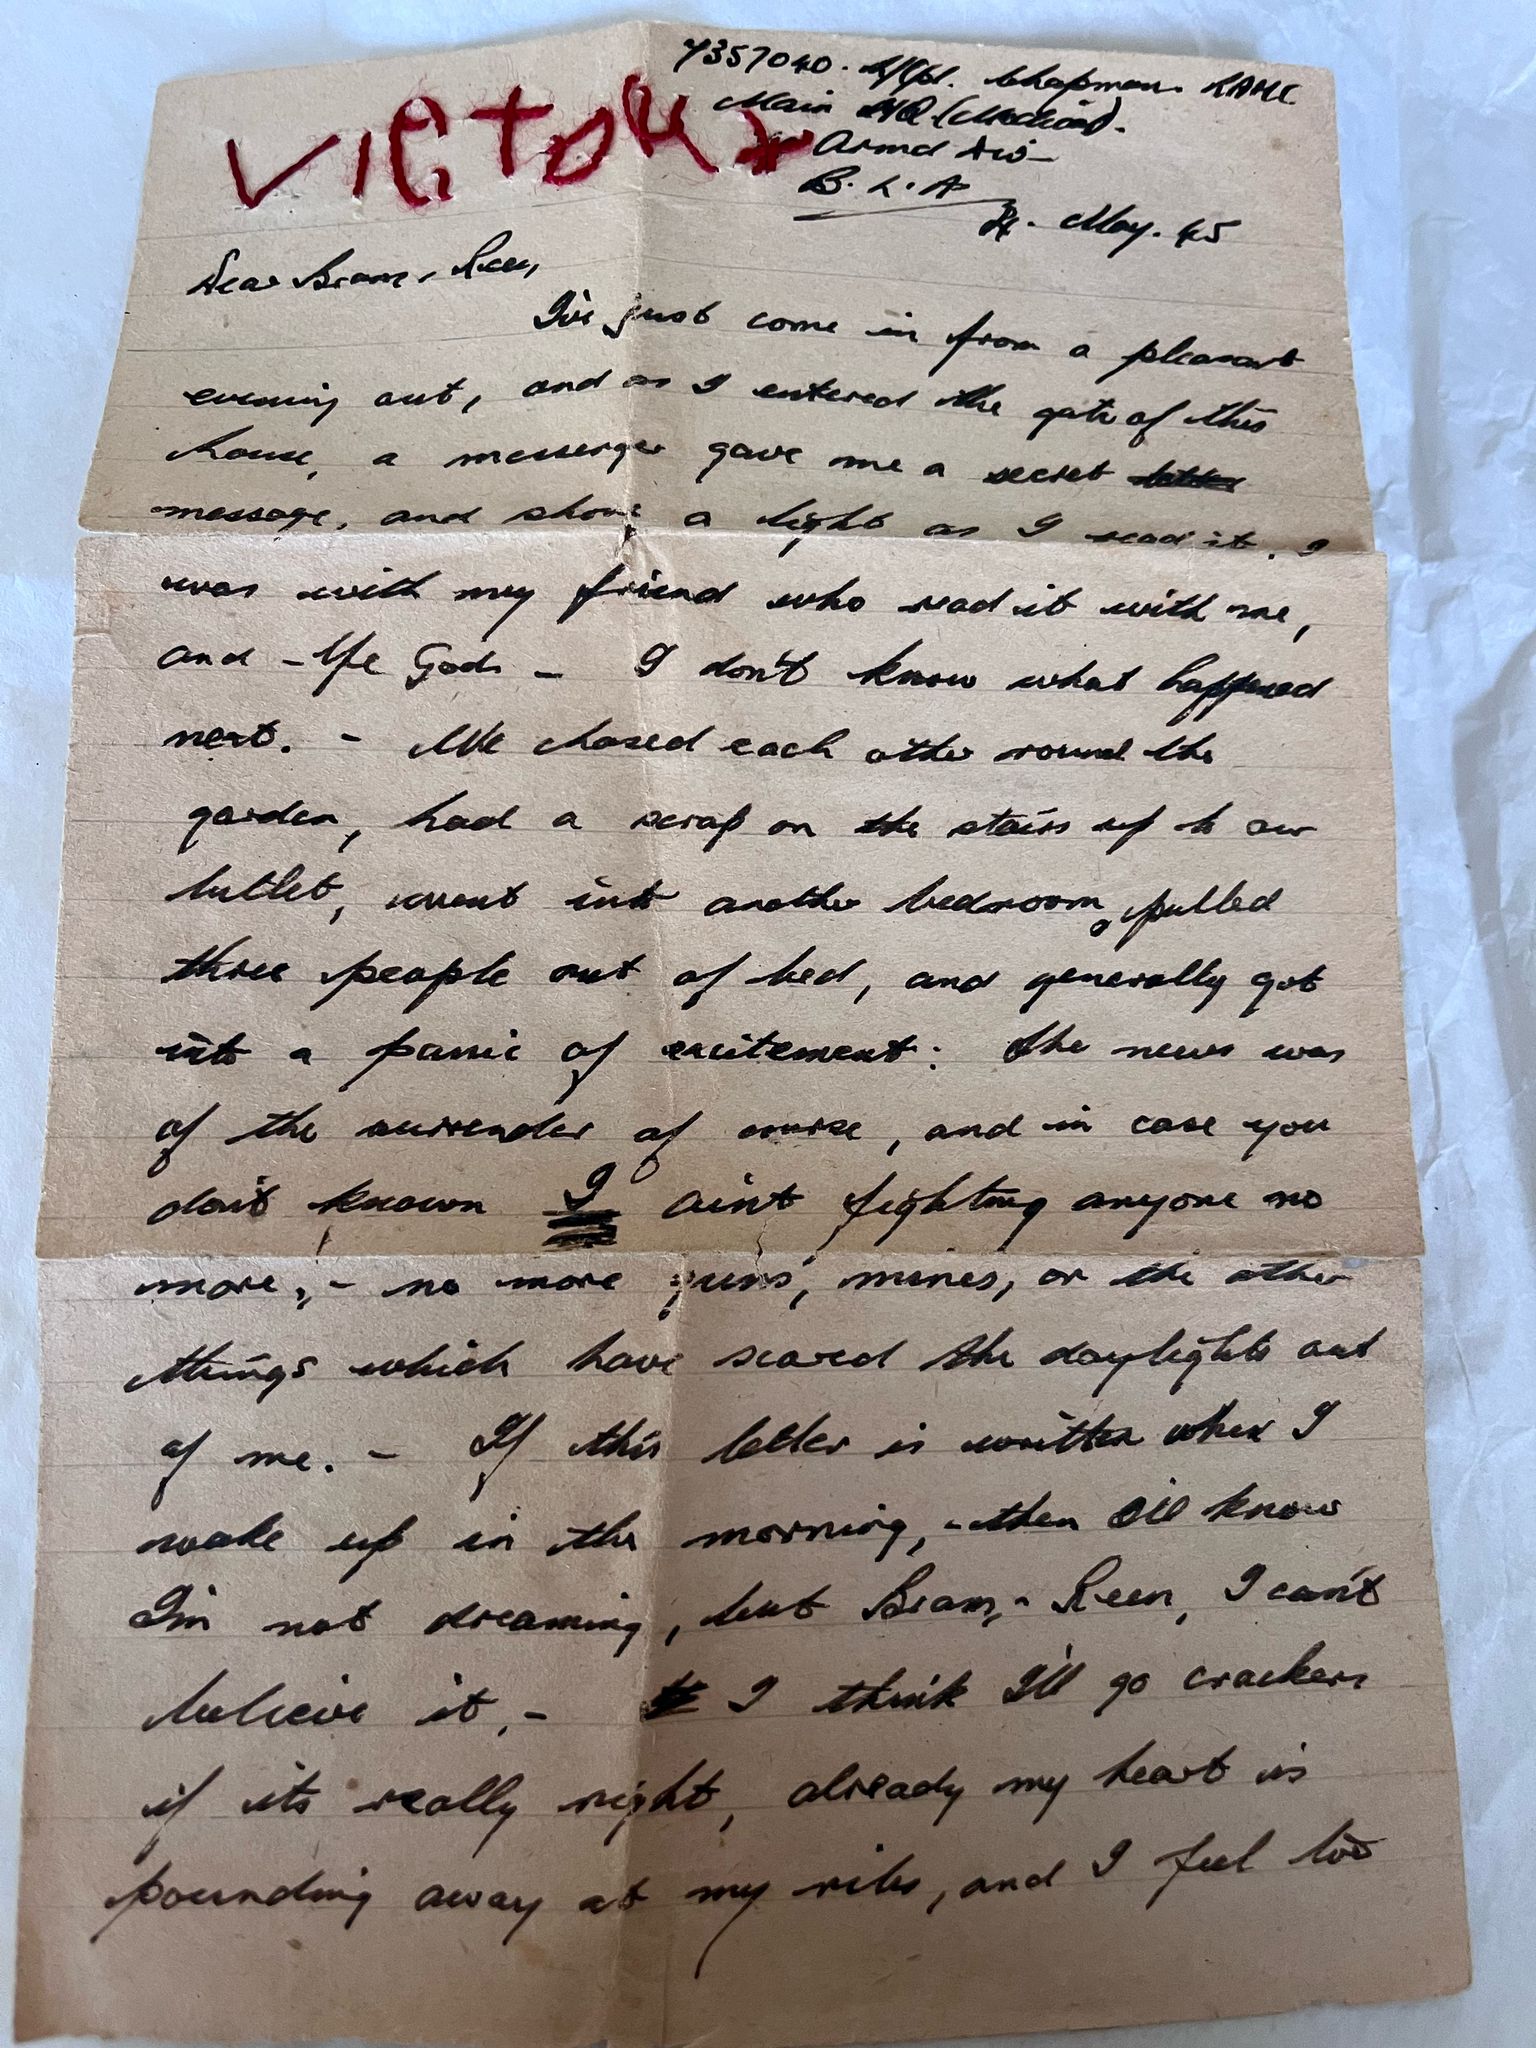 VICTORY
7357040. L/Cpl. Chapman. RAMC
Main HQ (Medical).
Armd Div
B.L.A
4. May. 45
Dear Bram, Reen,
I've just come in from a pleasant
evening out, and as I entered the gate of this
house, a messenger gave me a secret letter
message, and shone a light as I read it. I
was with my friend who read it with me,
and - Ye Gods - I don't know what happened
next. - We chased each other round the
garden, had a scrap on the stairs up to our
billet, went into another bedroom, pulled
three people out of bed, and generally got
into a panic of excitement: The news was
of the surrender of course, and in case you
don't known I ain't fighting anyone no
more, - no more guns, mines, or the other
things which have scared the daylights out
of me. - If this letter is written when I
wake up in the morning, - then I'll know
I'm not dreaming, but Bram, - Reen, I can't
believe it, - I think I'll go crackers
if its really right, already my heart is
pounding away at my ribs, and I feel too